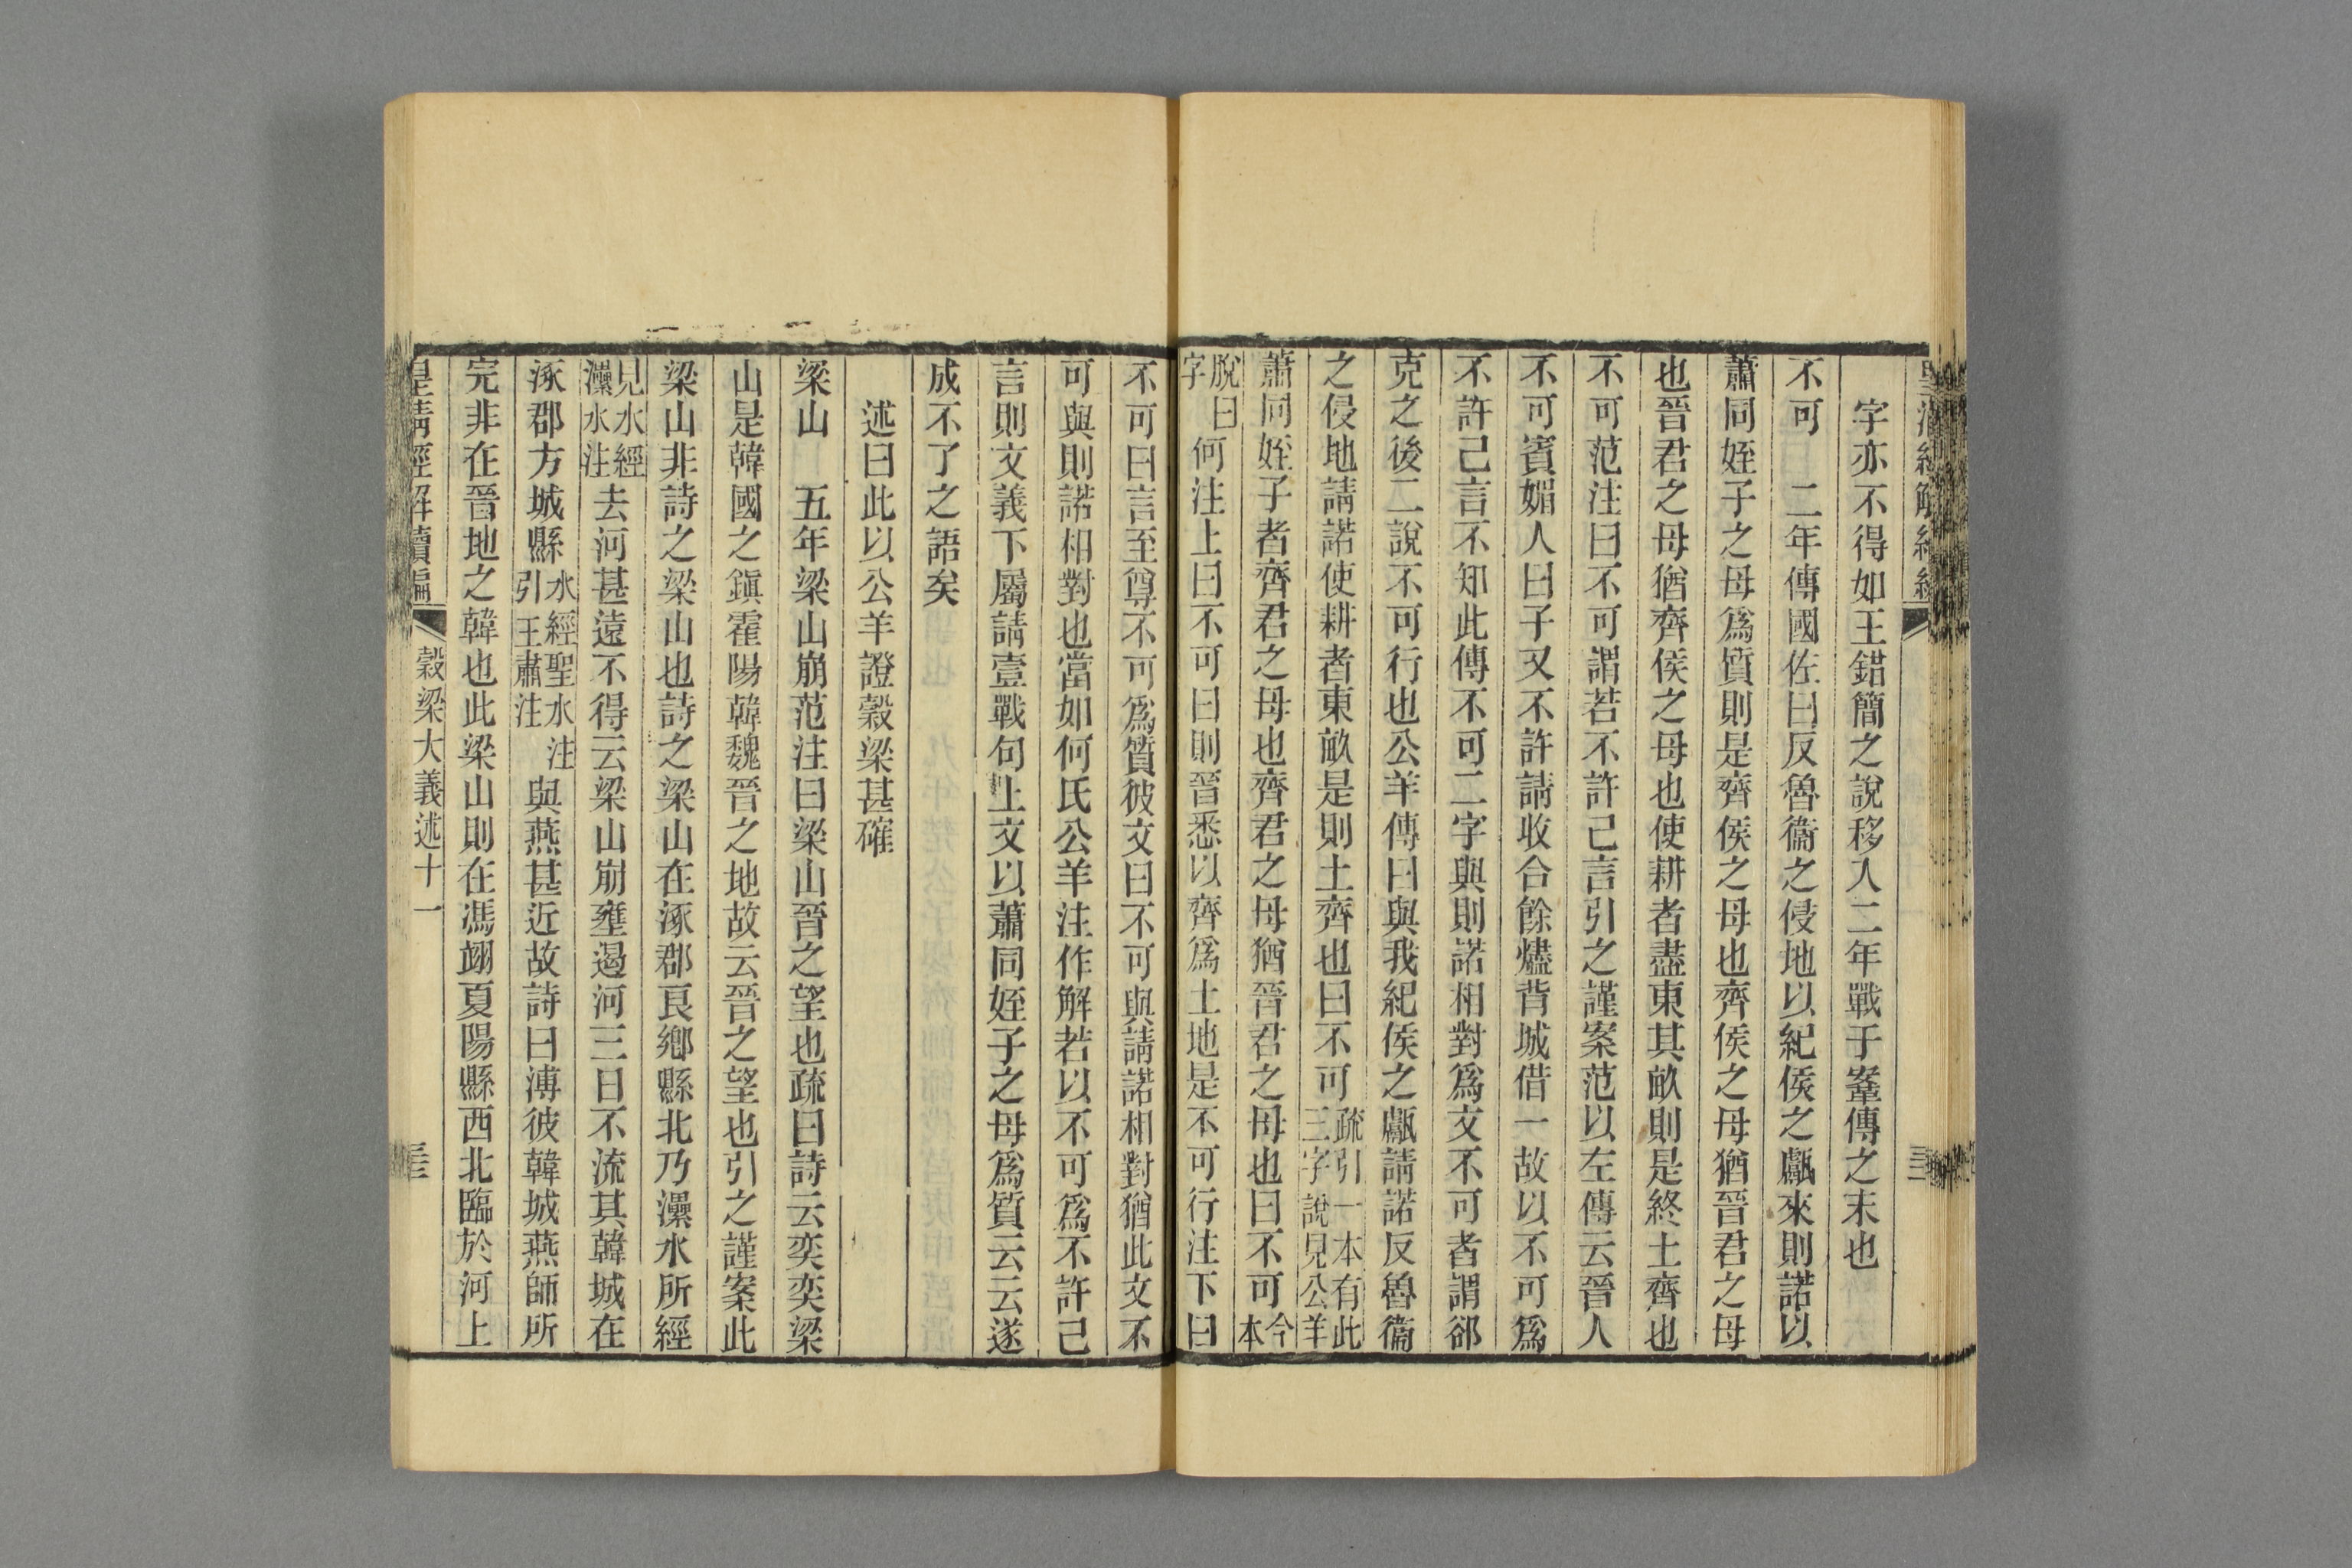 字亦不得如王錯簡之說移入二年戰于鞌傳之末也
不可　二年傳國佐曰反魯衞之侵地以紀侯之甗來則諾以
蕭同姪子之母爲質則是齊侯之母也齊侯之母猶晉君之母
也晉君之母猶齊侯之母也使耕者盡東其畝則是終土齊也
不可范注曰不可謂若不許己言引之謹案范以左傳云晉人
不可賓媚人曰子又不許請收合餘燼背城借一故以不可爲
不許己言不知此傳不可二字與則諾相對爲文不可者謂郤
克之後二說不可行也公羊傳曰與我紀侯之甗請諾反魯衞
之侵地請諾使耕者東畝是則土齊也曰不可疏引一本有此三字說見公羊
蕭同姪子者齊君之母也齊君之母猶晉君之母也曰不可今本
脫曰字何注上曰不可曰則晉悉以齊爲土地是不可行注下曰
不可曰言至尊不可爲質彼文曰不可與請諾相對猶此文不
可與則諾相對也當如何氏公羊注作解若以不可爲不許己
言則文義下屬請壹戰句上文以蕭同姪子之母爲質云云遂
成不了之語矣
述曰此以公羊證穀梁甚確
梁山　五年梁山崩范注曰梁山晉之望也疏曰詩云奕奕梁
山是韓國之鎭霍陽韓魏晉之地故云晉之望也引之謹案此
梁山非詩之梁山也詩之梁山在涿郡良鄉縣北乃㶟水所經
見水經㶟水注去河甚遠不得云梁山崩壅遏河三日不流其韓城在
涿郡方城縣水經聖水注引王肅注與燕甚近故詩曰溥彼韓城燕師所
完非在晉地之韓也此梁山則在馮翊夏陽縣西北臨於河上
皇淸經解續編
穀梁大義述十一